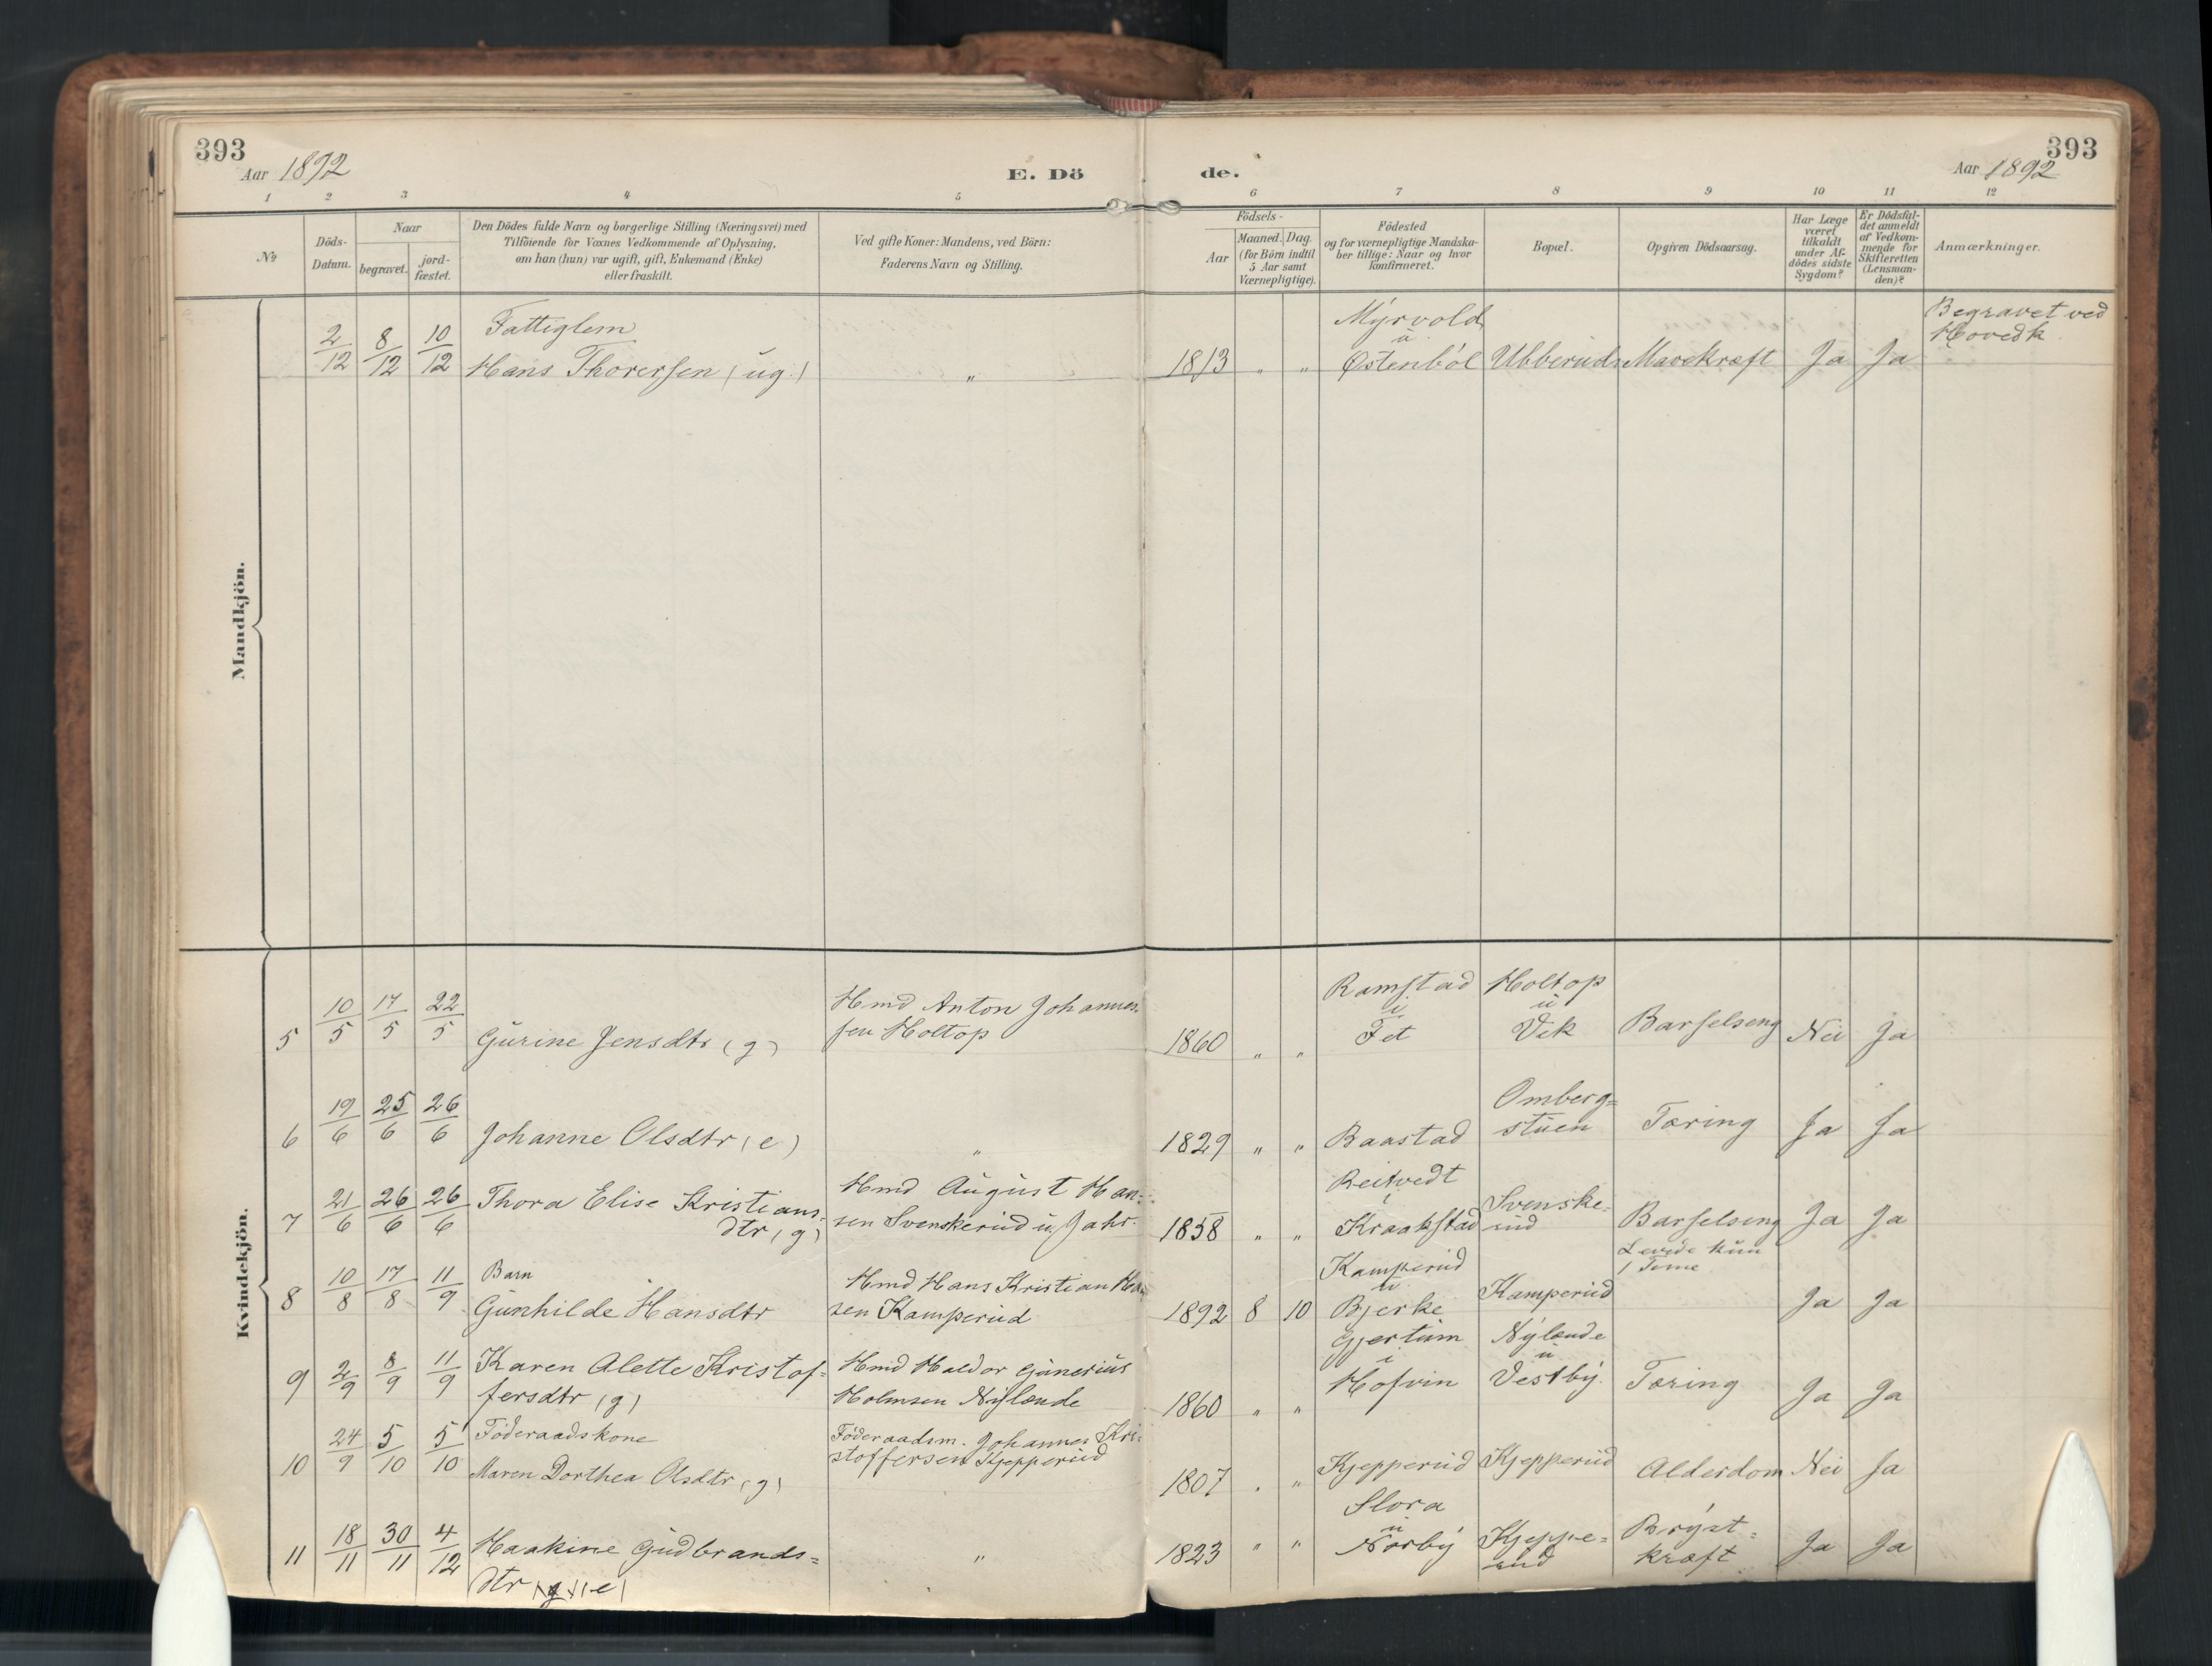 393
Aar 1892
E. Dö
de.
Aar 1892
393
1 2 3 4 5 6 7 8 9 10 11 12
No
Döds-
Datum.
Naar
begravet.
jord-
fæstet.
Den Dödes fulde Navn og borgerlige Stilling (Næringsvei) med
Tilföiende for Voxnes Vedkommende af Oplysning,
om han (hun) var ugift, gift, Enkemand (Enke)
eller fraskilt.
Ved gifte Koner: Mandens, ved Börn:
Faderens Navn og Stilling.
Födsels-
Aar
Maaned. Dag.
(for Börn indtil
5 Aar samt
Værnepligtige).
Födested
og for værnepligtige Mandska-
ber tillige: Naar og hvor
konfirmeret.
Bopæl.
Opgiven Dödsaarsag.
Har Læge
været
tilkaldt
under Af-
dödes sidste
Sygdom?
Er Dödsfal-
det anmeldt
af Vedkom-
mende for
Skifteretten
(Lensman-
den)?
Anmærkninger.
Mandkjön.
2/12 8/12 10/12
Fattiglem
Hans Thorersen (ug.)
"
1813 " "
Myrvold
u
Østenböl
Ubberud
Mavekræft
Ja
Ja
Begravet ved
Hovedk.
Kvindekjön.
5 10/5 17/5 22/5
Gurine Jensdtr (g)
Hmd Anton Johannes-
sen Holtop
1860 " "
Ramstad
i
Fet
Holtop
u
Vik
Barselseng
Nei
Ja
6 19/6 25/6 26/6
Johanne Olsdtr (e)
"
1829 " "
Baastad
Omberg=
stuen
Tæring
Ja
Ja
7 21/6 26/6 26/6
Thora Elise Kristians-
dtr (g)
Hmd August Han-
sen Svenskerud u. Jahr.
1858 " "
Reitvedt
i
Kraakstad
Svenske-
rud
Barselseng
Ja
Ja
8 10/8 17/8 11/9
Barn
Gunhilde Hansdtr
Hmd Hans Kristian Han-
sen Kamperud
1892 8 10
Kamperud
u
Bjerke
Kamperud
Levede kun
1 Time
Ja
Ja
9 2/9 8/9 11/9
Karen Alette Kristof-
fersdtr (g)
Hmd Haldor Gunerius
Holmsen Nylænde
1860 " "
Gjertum
i
Hofvin
Nylænde
u
Vestby.
Tæring
Ja
Ja
10 24/9 5/10 5/10
Föderaadskone
Maren Dorthea Olsdtr (g)
Föderaadsm. Johannes Kri-
stoffersen Kjepperud
1807 " "
Kjepperud
Kjepperud
Alderdom
Nei
Ja
11 18/11 30/11 4/12
Haakine Gudbrands=
dtr (g) (e)
"
1823 " "
Slora
u
Norby
Kjeppe-
rud
Bryst-
kræft
Ja
Ja